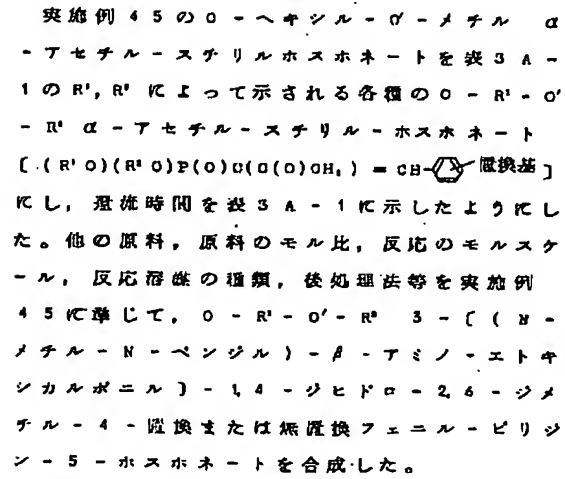 実施例45のO-ヘキシル-O'-メチル α
-アセチル-スチリルホスホネートを表3A-
1のR¹,R²によって示される各種のO-R¹-O'
-R² α-アセチル-スチリル-ホスホネート
[(R¹O)(R²O)P(O)C(C(O)CH₃)=CH- 置換基]
にし,還流時間を表3A-1に示したようにし
た。他の原料,原料のモル比,反応のモルスケ
ール,反応溶媒の種類,後処理法等を実施例
45に準じて,O-R¹-O'-R² 3-[(N-
メチル-N-ベンジル)-β-アミノ-エトキ
シカルボニル]-1,4-ジヒドロ-2,6-ジメ
チル-4-置換または無置換フェニル-ピリジ
ン-5-ホスホネートを合成した。